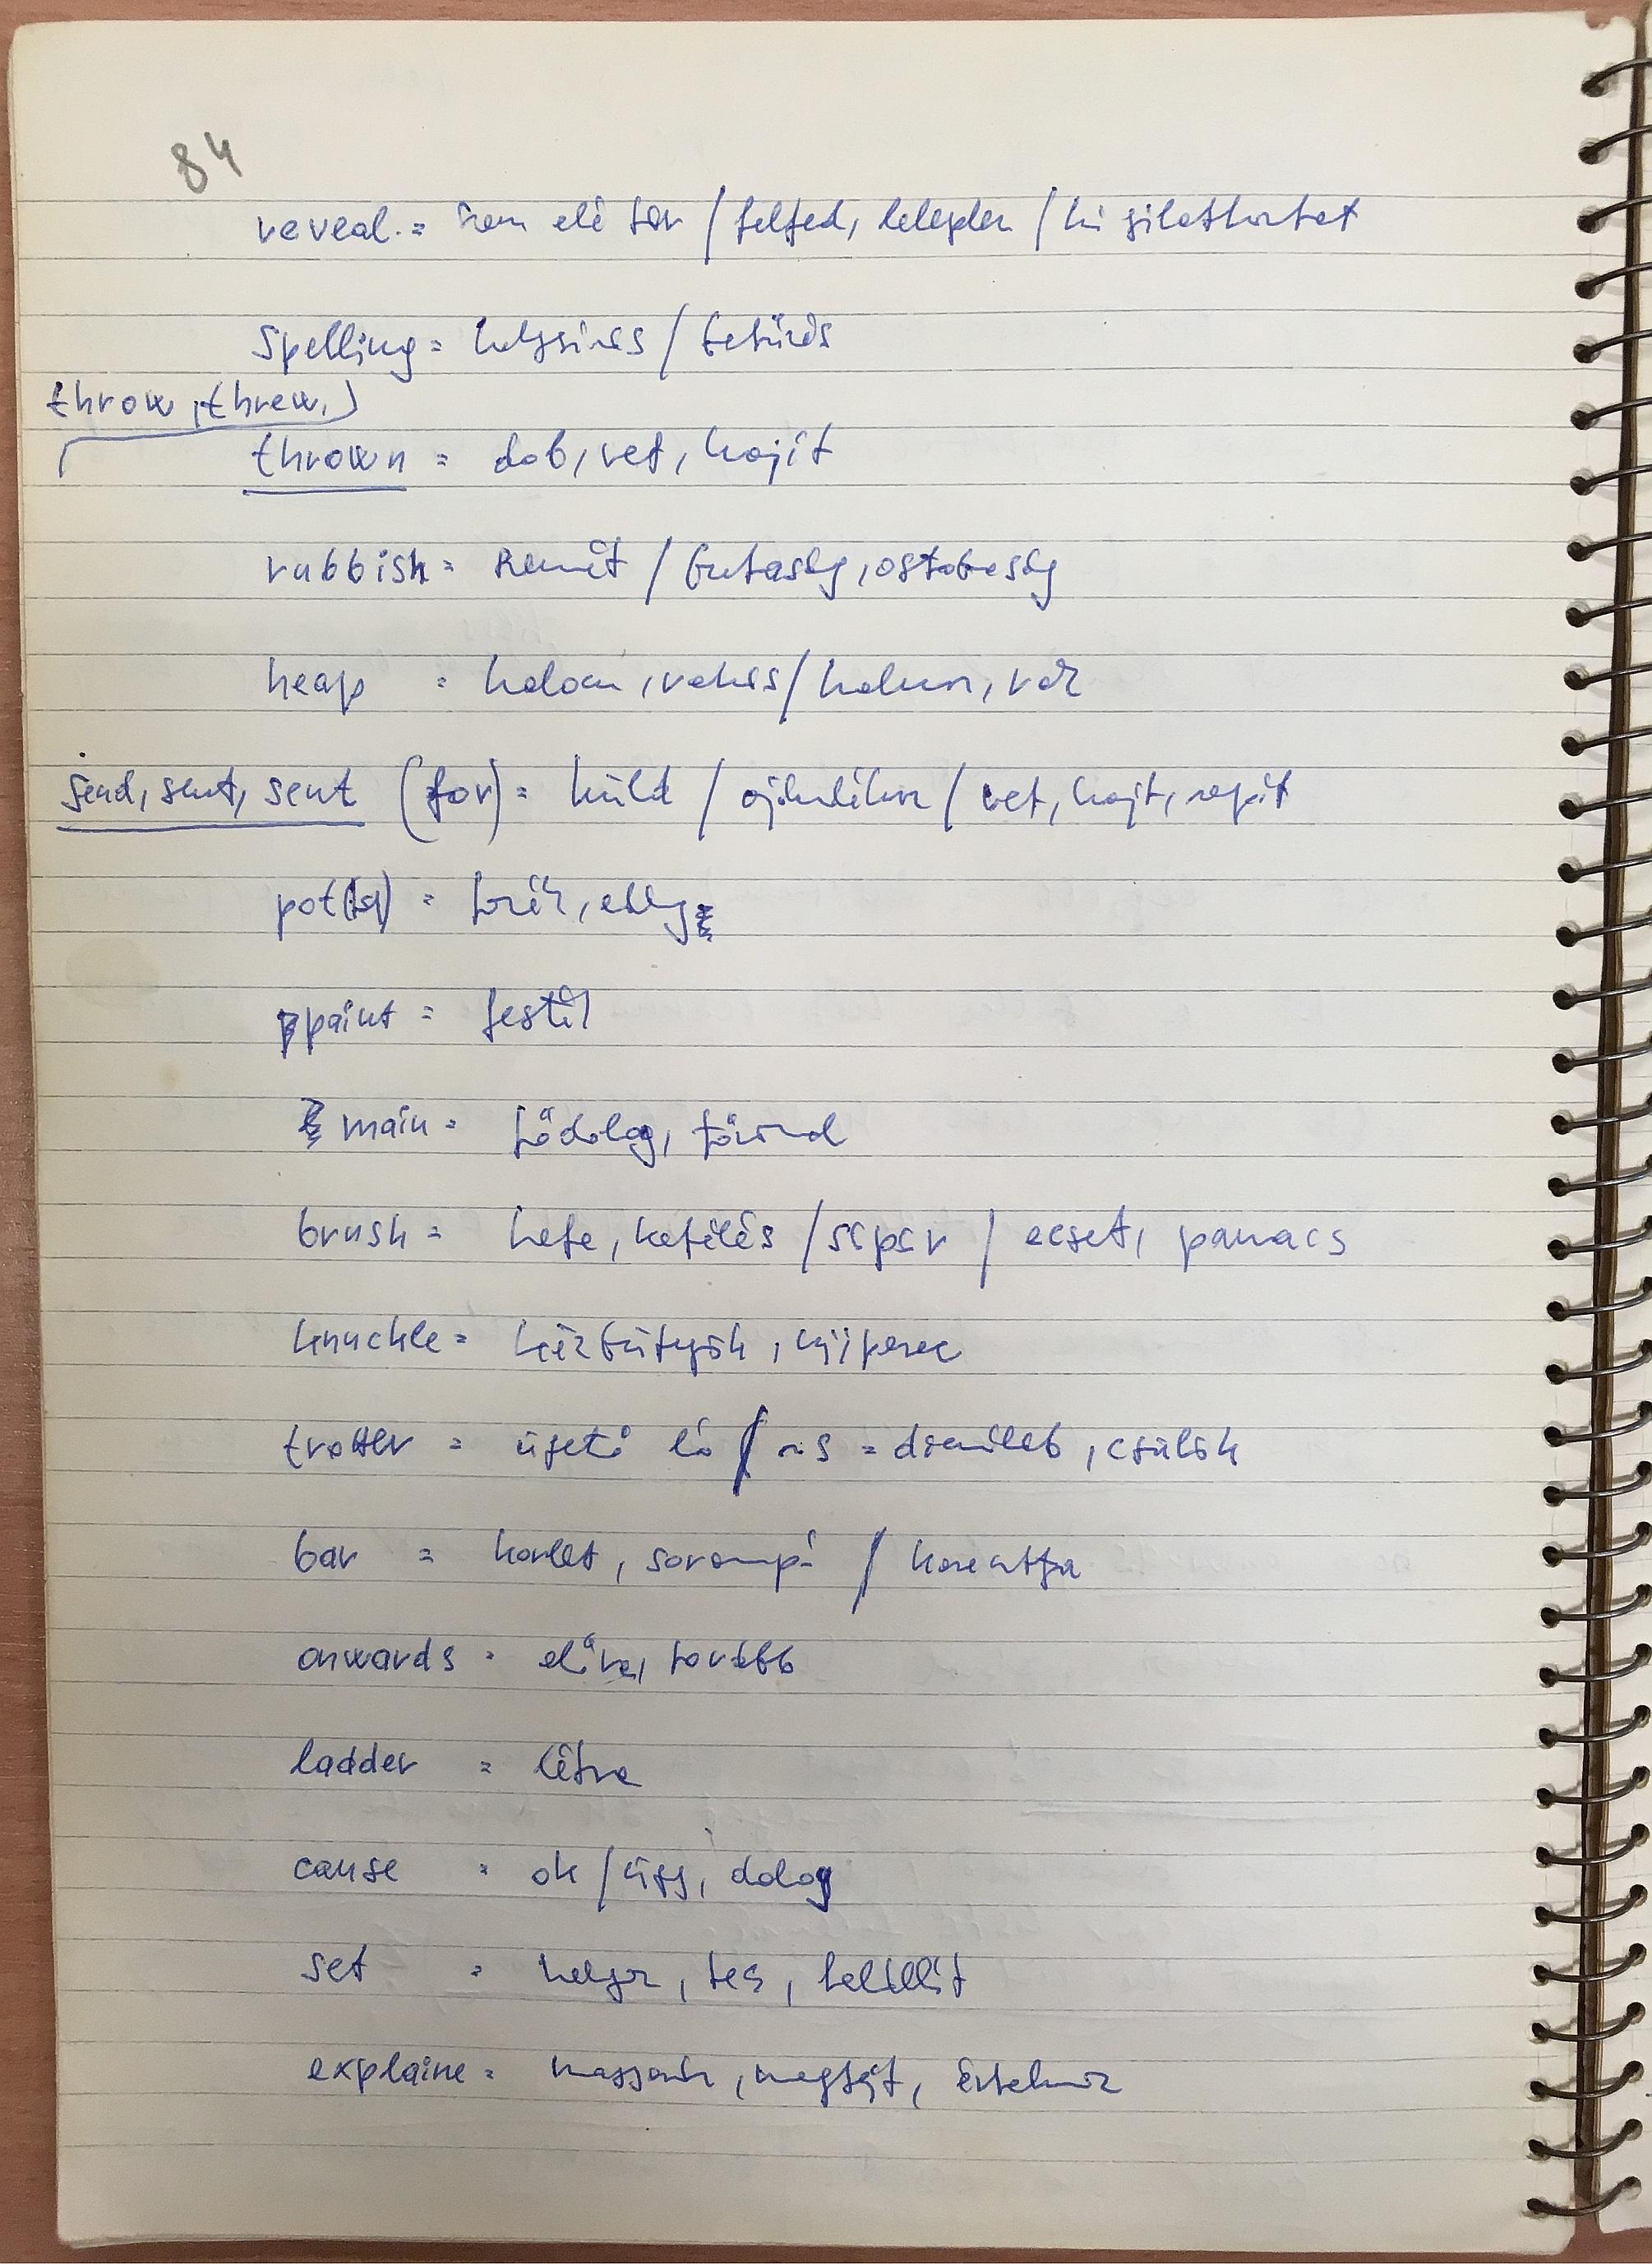 84
reveal = szem elé tár / felfed, leleplez / kinyilatkoztat
Spelling = helyesírás / betűzés
throw, threw,
thrown = dob, vet, hajít
rubbish = szemét / butaság, ostobaság
heap = halom, rakás / halmoz,
send, sent, sent (for) = küld / / vet, hajít, repít
pot = bögre, edény
paint = festék
main = fődolog,
brush = kefe, kefélés / söpör / ecset, pamacs
knuckle = kézbütyök, ujjperec
trotter = ügető ló / ~s = disznóláb, csülök
bar = korlát, sorompó / korlátfa
onwards = előre, tovább
ladder = létra
cause = ok / ügy, dolog
set = helyez, tesz, felállít
explaine = magyaráz, megfejt, értelmez